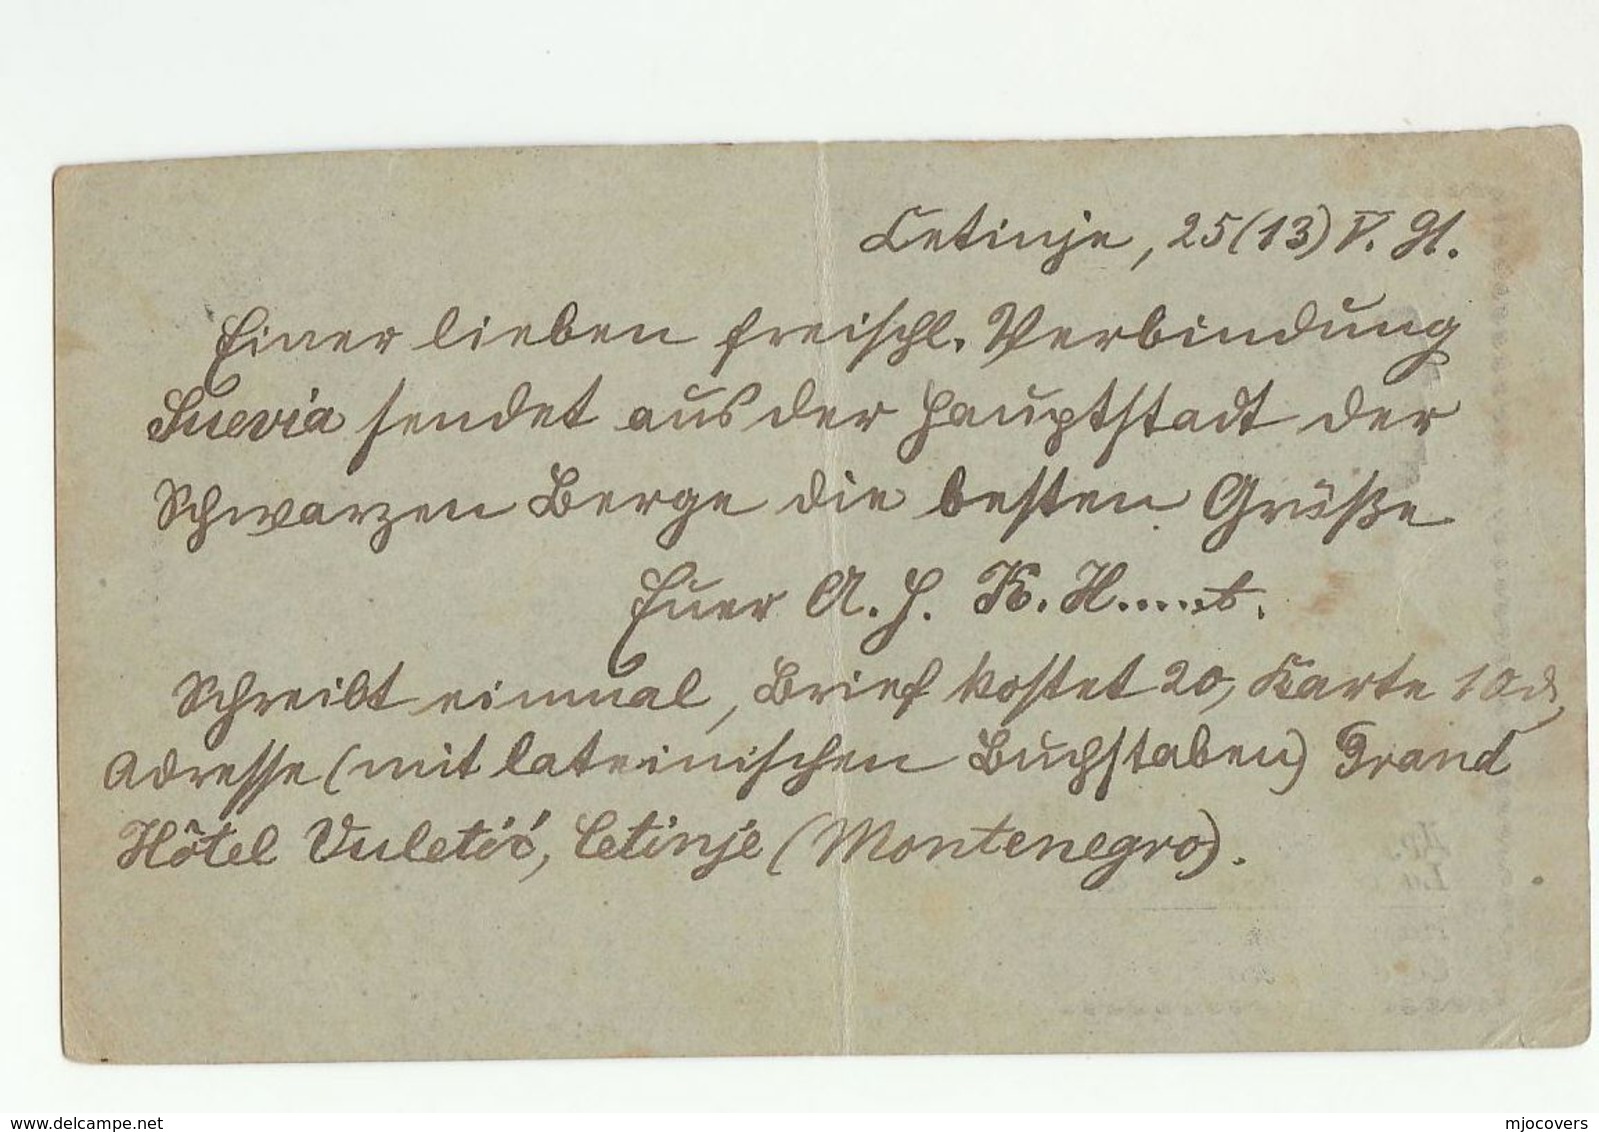 Cetinje, 25(13) V. 91.
Einer lieben freischl. Verbindung
Suevia sendet aus der Hauptstadt der
Schwarzen Berge die besten Grüße
Euer A. H. K. H.....t.
Schreibt einmal, Brief kostet 20, Karte 10 d,
Adresse (mit lateinischen Buchstaben) Grand
Hôtel Vuletić, Cetinje (Montenegro).
mjocovers
delcampe.net